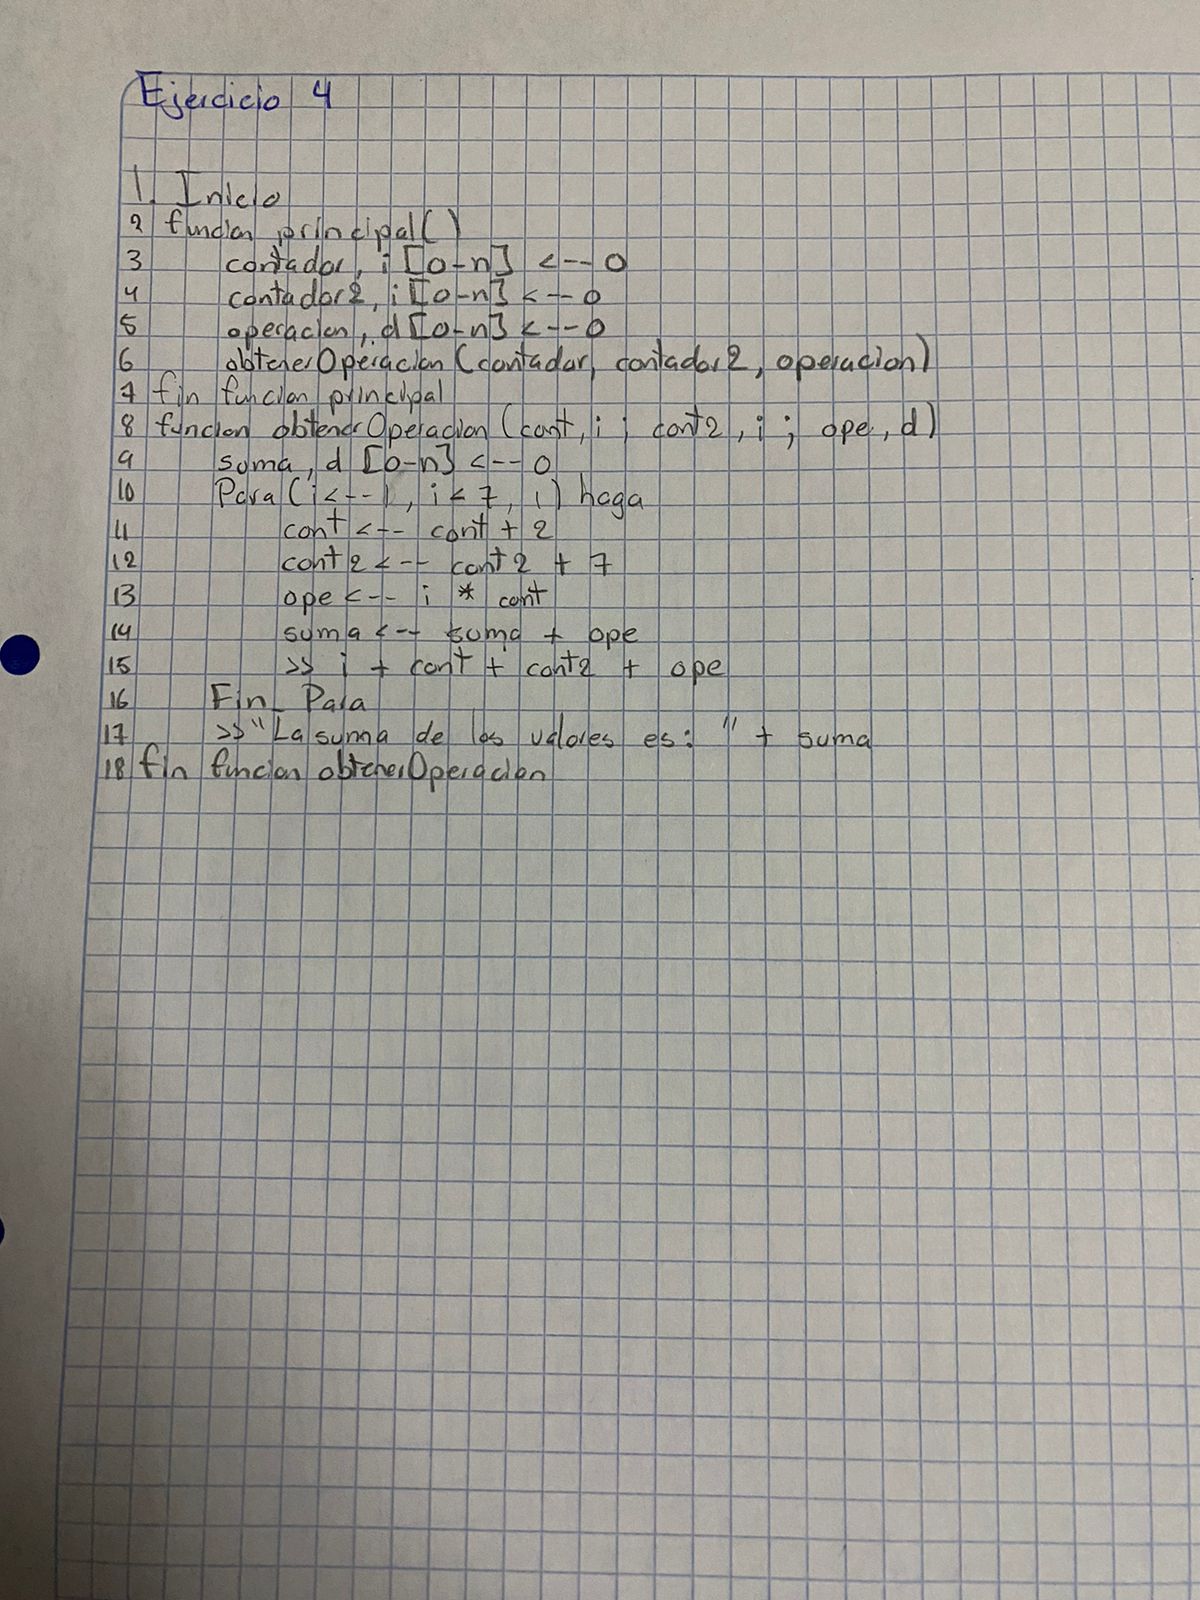 Ejercicio 4
1. Inicio
2 funcion principal()
3 contador, i [0-n] <-- 0
4 contador2, i [0-n] <-- 0
5 operacion, d [0-n] <-- 0
6 obtenerOperacion (contador, contador2, operacion)
7 fin funcion principal
8 funcion obtenerOperacion (cont, i ; cont2, i ; ope, d)
9 suma, d [0-n] <-- 0
10 Para (i <-- 1, i < 7, 1) haga
11 cont <-- cont + 2
12 cont2 <-- cont2 + 7
13 ope <-- i * cont
14 suma <-- suma + ope
15 >> i + cont + cont2 + ope
16 Fin_Para
17 >> "La suma de los valores es: " + suma
18 fin funcion obtenerOperacion